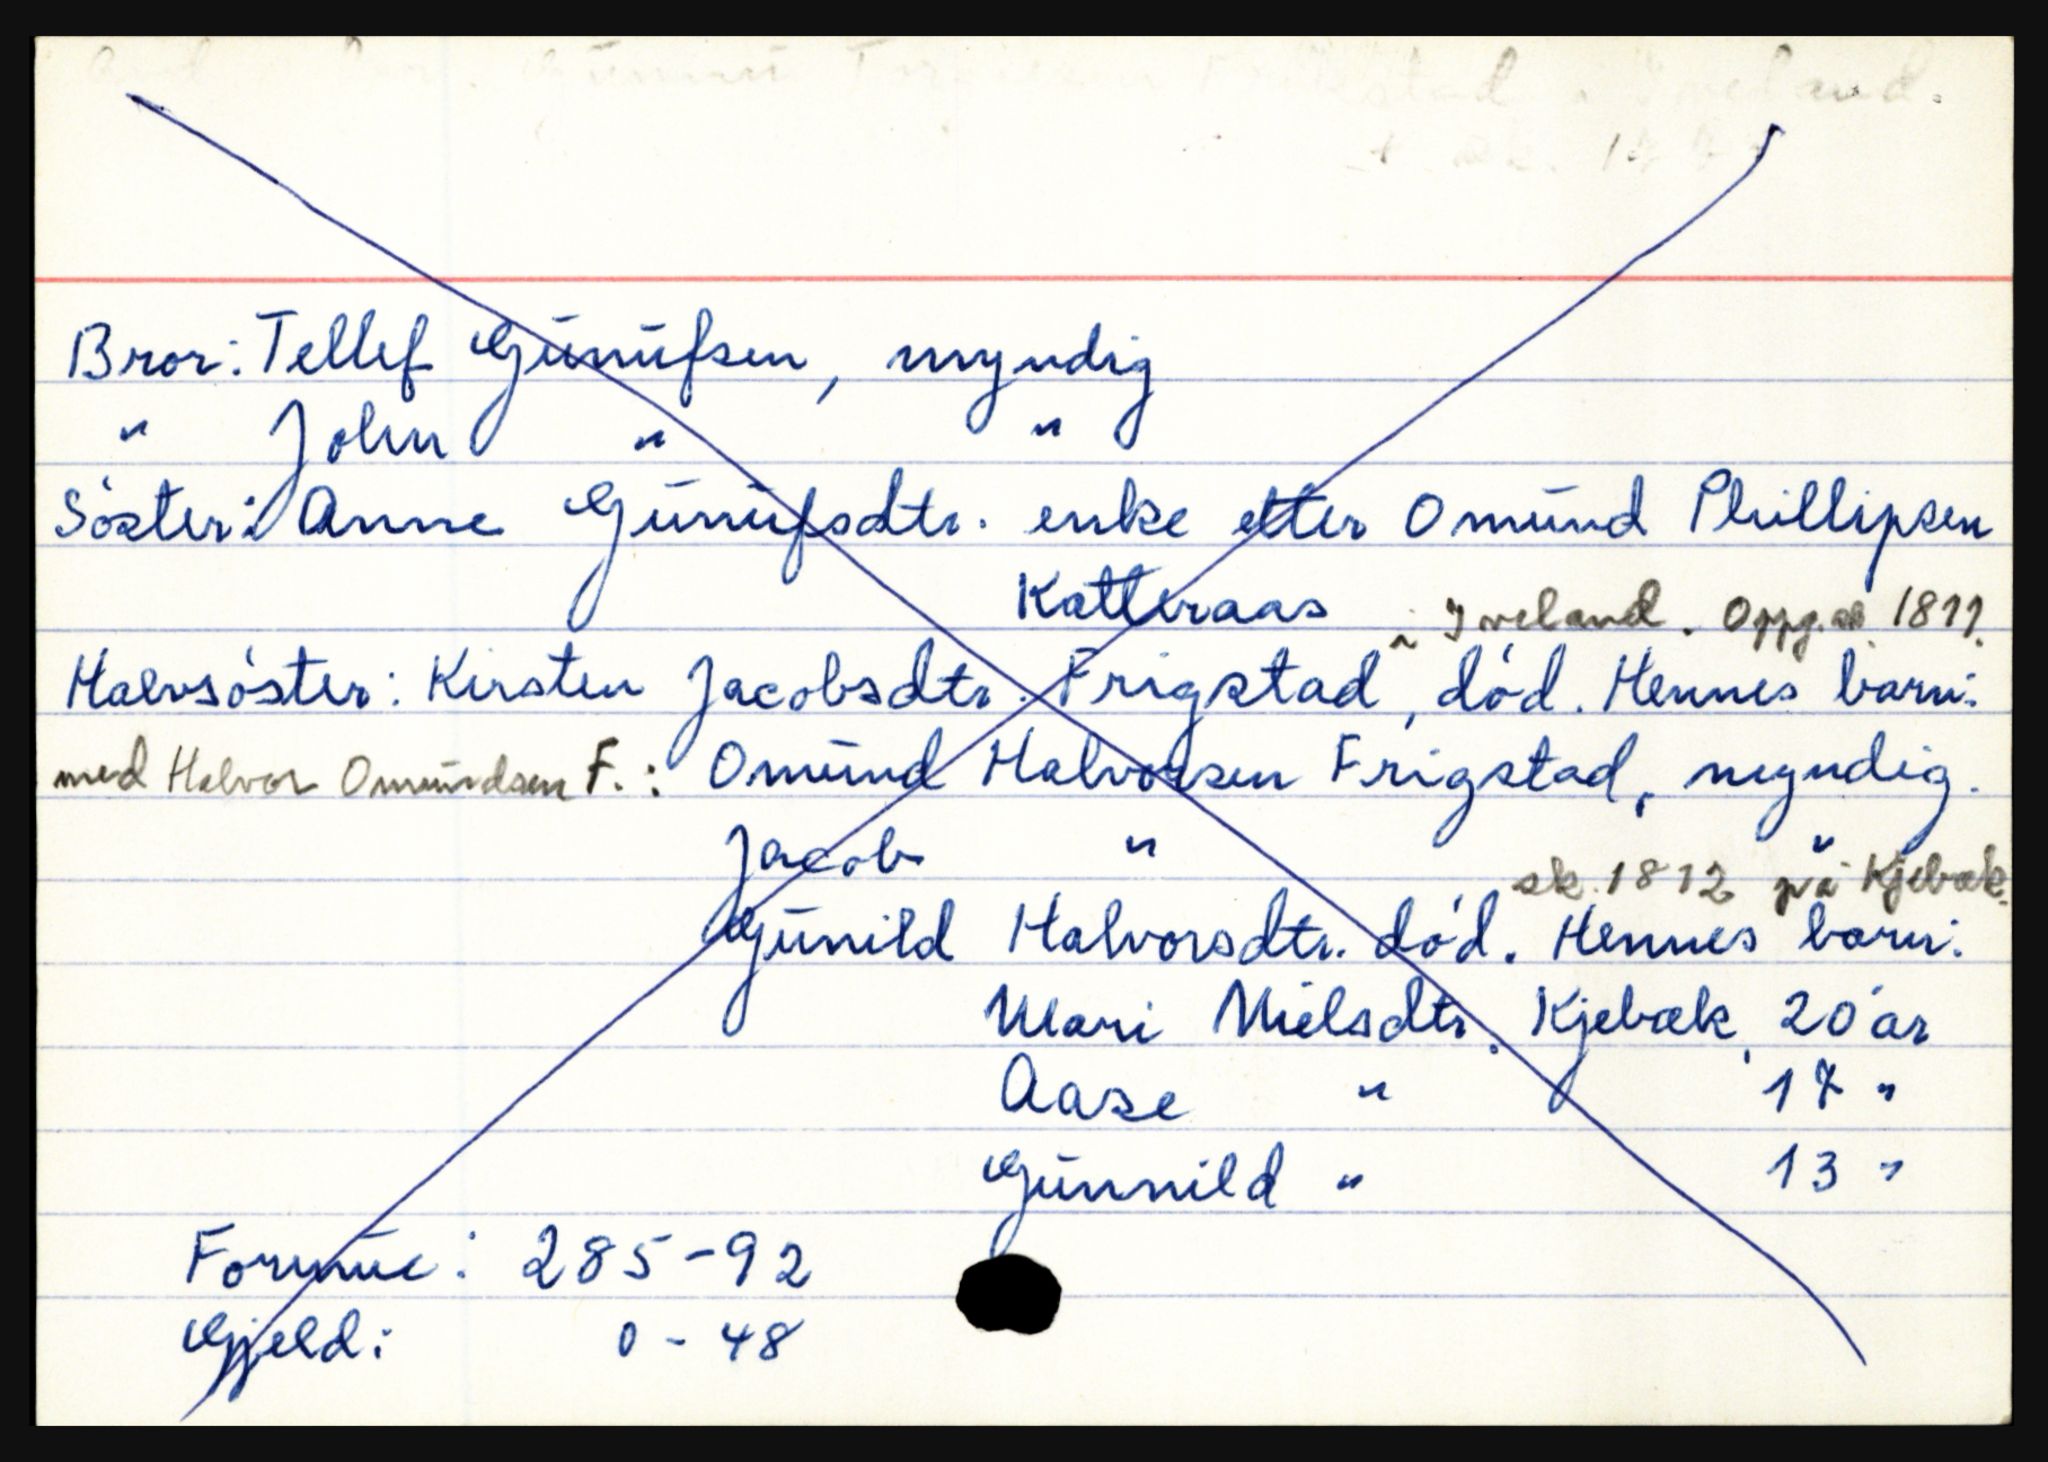 Bror: Tellef Gunufsen, myndig
" John " "
Söster: Anne Gunufsdtr. enke etter Omund Phillipsen
Katteraas i Iveland. Oppg. 1811.
Halvsöster: Kirsten Jacobsdtr. Frigstad, död. Hennes barn:
med Halvor Omundsen F.: Omund Halvorsen Frigstad, myndig.
Jacob " "
sk. 1812 på Kjebæk.
Gunild Halvorsdtr. död. Hennes barn:
Mari Nielsdtr. Kjebæk, 20 år
Aase " 17 "
Gunnild " 13 "
Formue: 285-92
Gjeld: 0-48